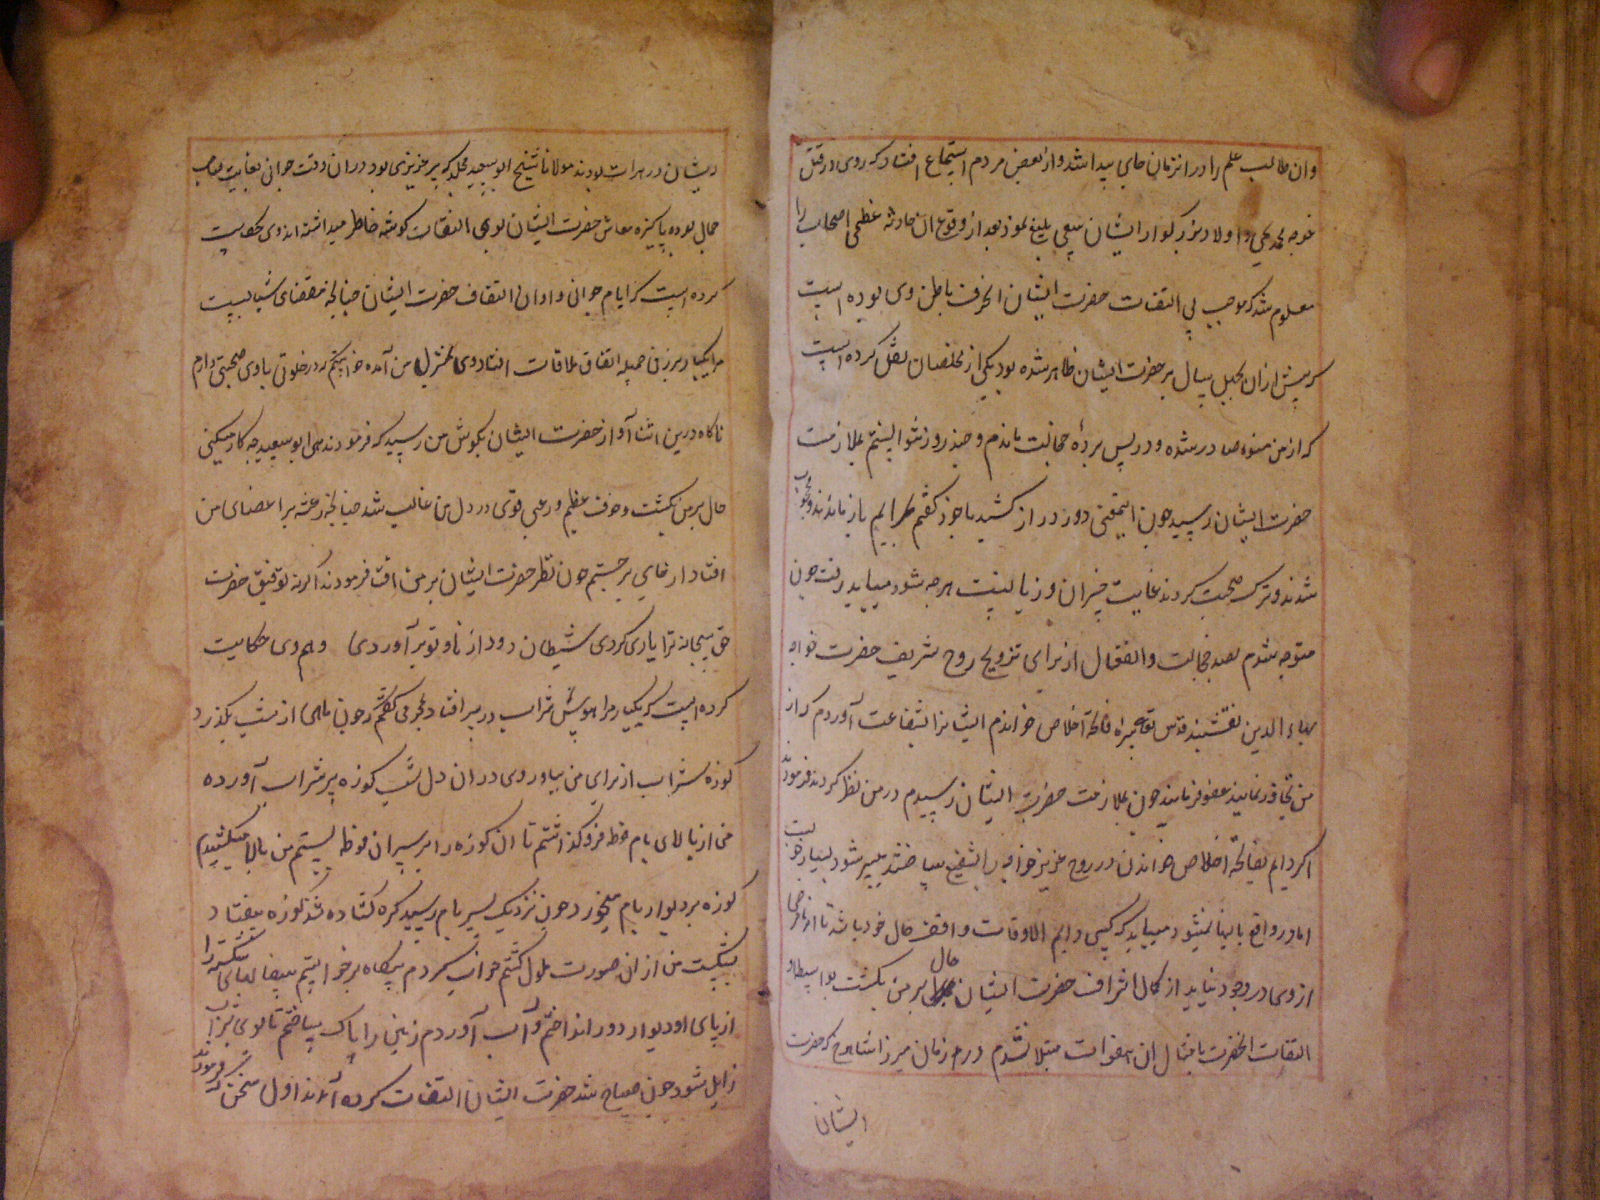 وان طالب علم را در انزمان جای پیدا شد و از بعض مردم استماع افتاد که روی در قتل
خوجه محمد یحیی و اولاد بزرگوار ایشان سعی بلیغ نمود بعد از وقوع ان حادثه عظمی اصحاب را
معلوم شد که موجب بی التفات حضرت ایشان انحراف باطن وی بوده است
که پیش از ان بچهل سال بر حضرت ایشان ظاهر شده بود یکی از مخلصان نقل کرده است
که از من صادر شده و در پس پرده خجالت ماندم و چند روز نتوانستم بملازمت
حضرت ایشان رسید چون این دور دراز کشید با خود کفتم باز ماندند
شدند و ترک صحبت کردند غایت خسران و زیانست هرچه شود میباید رفت چون
متوجه شدم بصد خجالت و انفعال از برای ترویح روح شریف حضرت خواجه
بهاء الدین نقشبند قدس سره فاتحه اخلاص خواندم ایشانرا بشفاعت آوردم که از
من تجاوز نمایند عفو فرمایند چون بملازمت حضرت ایشان رسیدم در من نظر کردند فرمودند
اکر دایم بفاتحه اخلاص خواندن و روح عزیز خواجه را شفیع ساختند میسر شود بسیار خوب است
اما در واقع باینها نمیشود میباید که کسی دایم الاوقات واقف حال خود باشد تا
از وی در وجود نیاید از کمال اشراف حضرت ایشان حال بر من بکشت بواسطه
التفات انحضرت بامثال ان هفوات مبتلا نشدم در زمان میرزا شاهرخ که حضرت
ایشان
ایشان در هرات بودند مولانا شیخ ابوسعید مجلد که پیر عزیزی بود در ان وقت جوانی بغایت صاحب
جمال بوده پاکیزه معاش حضرت ایشان بوی التفات کوشه خاطر میداشته اند وی حکایت
کرده است که ایام جوانی و اوان التفات حضرت ایشان چنانچه مقتضای شبابست
مرا یکبار بزنی جمیله اتفاق ملاقات افتاد وی بمنزل من آمده خواستم که در خلوتی با وی صحبتی دارم
ناکاه درین اثنا آواز حضرت ایشان بکوش من رسید که فرمودند هی ابوسعید چه کار میکنی
حال بر من بکشت و خوف عظیم و رعبی قوی در دل من غالب شد چنانچه رعشه بر اعضای من
افتاد از جای برجستم چون نظر حضرت ایشان بر من افتاد فرمودند اکر نه توفیق حضرت
حق سبحانه ترا یاری کردی شیطان دود از نهاد تو برآوردی و هم وی حکایت
کرده است که یکبار مرا هوس شراب در سر افتاد کفتم چون از شب بکذرد
کوزه شراب از برای من بیاور وی در ان دل شب کوزه پر شراب آورده
من از بالای بام فوطه فروکذاشتم تا ان کوزه را بر سر ان فوطه بستم من بالا میکشیدم
کوزه بر دیوار بام میخورد چون نزدیک بسر بام رسید کره کشاده شد کوزه بیفتاد
بشکست من از ان صورت ملول کشتم خواب کردم پکاه برخواستم سفالهای شکسته را
از پای او دیوار دور انداختم و آب آوردم زمین را پاک ساختم تا بوی شراب
زایل شود چون صباح شد حضرت ایشان التفات کرده آمدند اول سخن که فرمودند